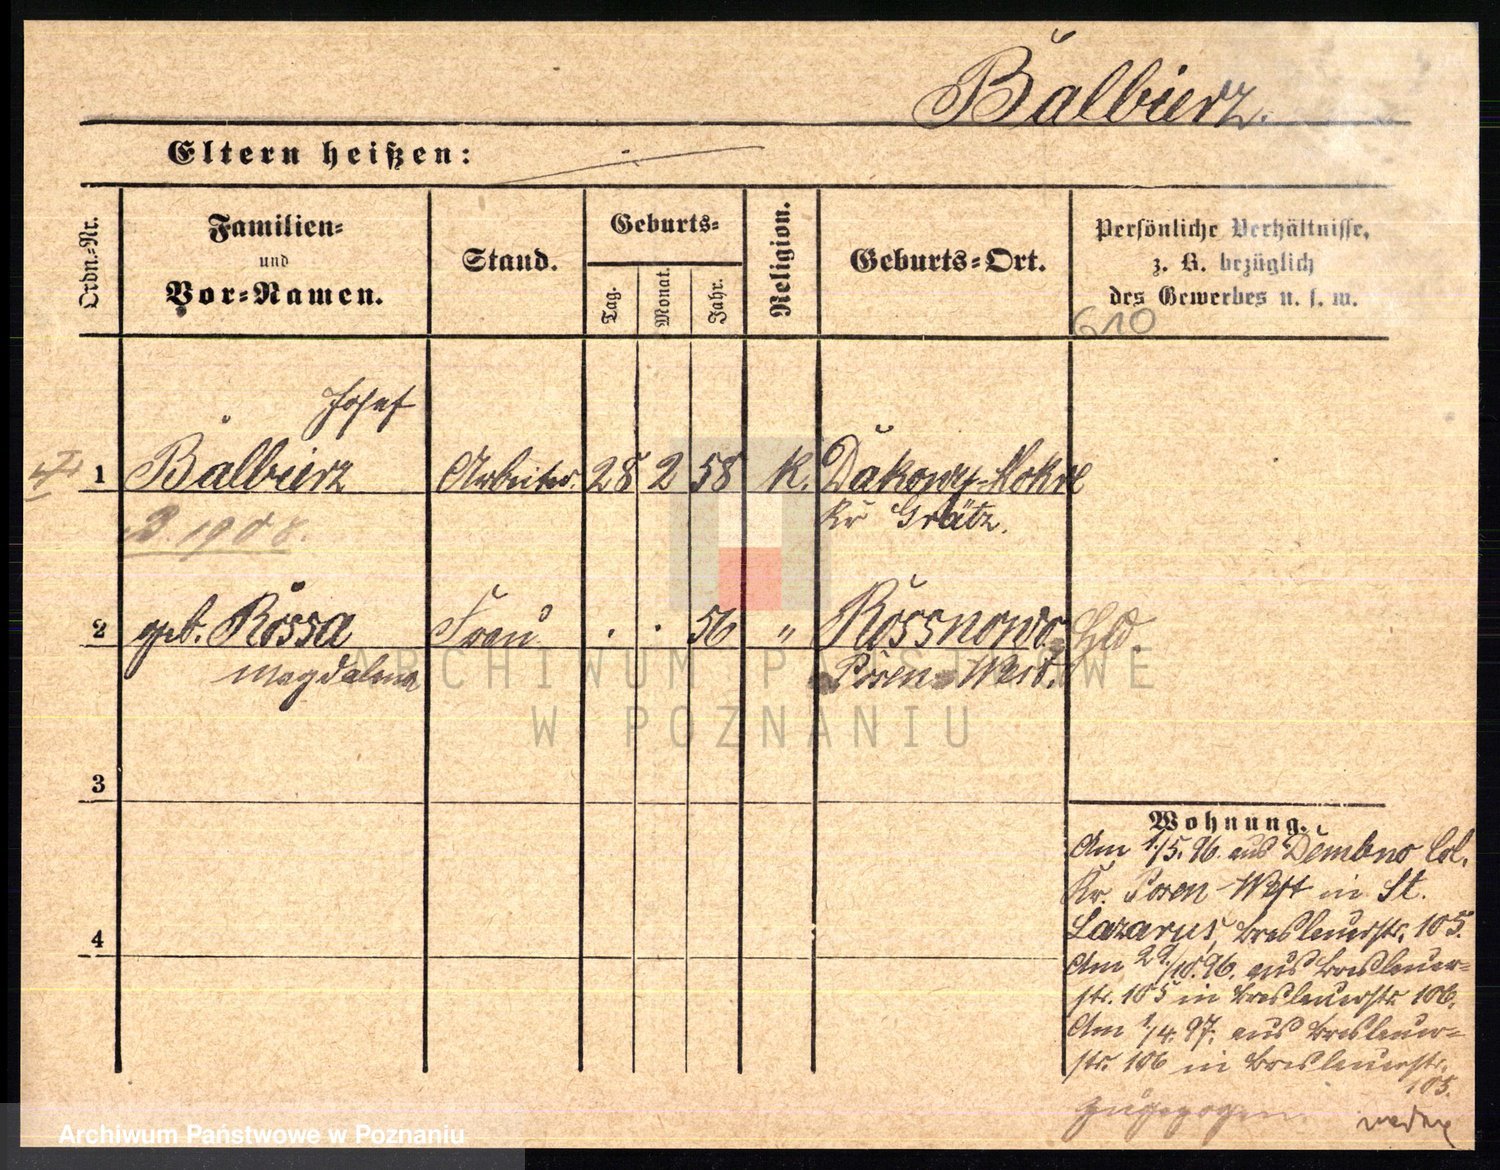 Balbierz.
Eltern heißen:
Ordn.-Nr.
Familien- und Vor-Namen.
Stand.
Geburts-
Tag.
Monat.
Jahr.
Religion.
Geburts-Ort.
Persönliche Verhältnisse,
z. B. bezüglich
des Gewerbes u. s. w.
610
Josef
1 Balbierz Arbeiter 28 2 58 K. Dakowy-Mokre
Kr Grätz.
1908.
2 geb. Rossa Frau . . 56 " Rossnowo
Magdalena Posen-West.
3
4
Wohnung.
Am 1./5. 96. aus Dembno Col.
Kr. Posen-West in St.
Lazarus, Breslauerstr. 105.
Am 29./10. 96. aus Breslauer-
str. 105 in Breslauerstr. 106.
Am 1/4. 97. aus Breslauer-
str. 106 in Breslauerstr.
105.
zugezogen.
ARCHIWUM PAŃSTWOWE
W POZNANIU
Archiwum Państwowe w Poznaniu